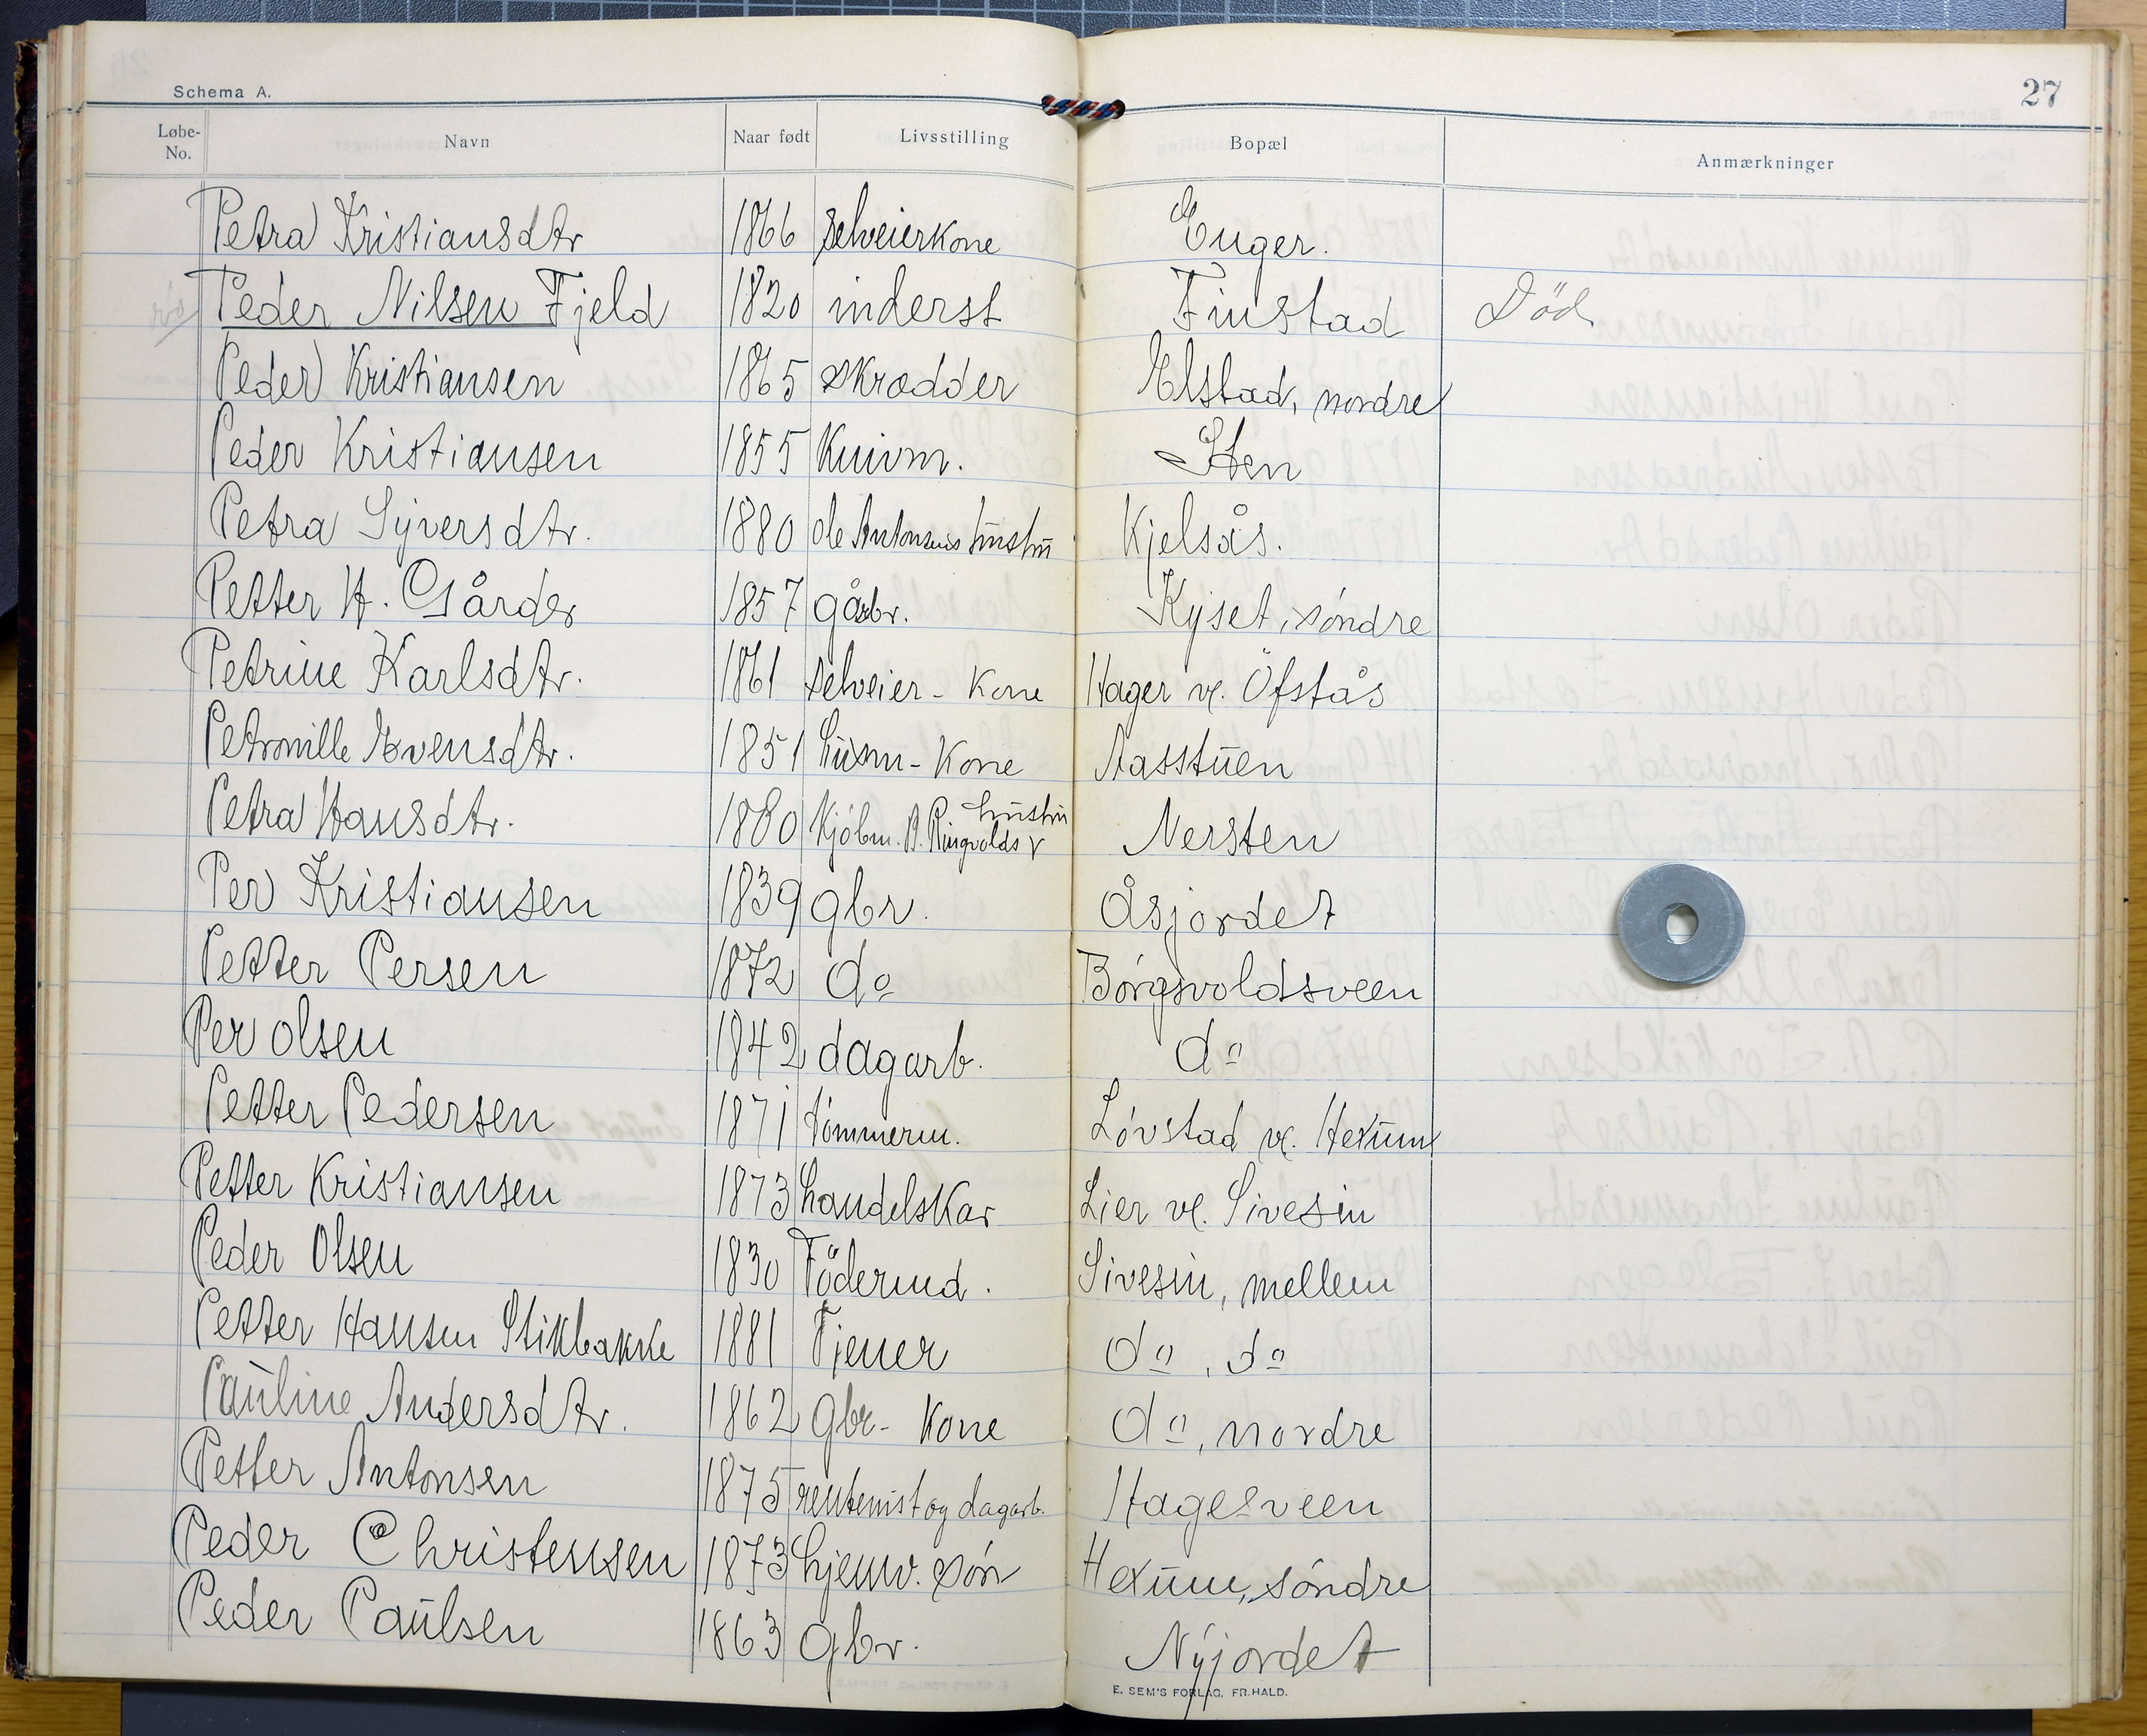 Schema A.
27
Løbe-No. Navn Naar født Livsstilling Bopæl Anmærkninger
Petra Kristiansdtr 1866 selveierkone Enger.
Peder Nilsen Fjeld 1820 inderst Finstad Död
Peder Kristiansen 1865 skrædder Elstad, nordre
Peder Kristiansen 1855 Kuivm. Sten
Petra Syversdtr. 1880 Ole Antonsens hustru Kjelsås.
Petter H. Gårder 1857 gårbr. Kyset, söndre
Petrine Karlsdtr. 1861 selveier - Kone Hager v. Öfstås
Petronille Evensdtr. 1851 husm - Kone Aasstuen
Petra Hansdtr. 1880 Kjöbm. B. Ringvolds hustru Nersten
Per Kristiansen 1839 gbr. Åsjordet
Petter Persen 1872 do Börgsvoldsveen
Per Olsen 1842 dagarb. do
Petter Pedersen 1871 tömmerm. Lövstad v. Hexum
Petter Kristiansen 1873 handelskar Lier v. Sivesin
Peder Olsen 1830 Föderaad. Sivesin, mellem
Petter Hansen Stikbakke 1881 Tjener do, do
Pauline Andersdtr. 1862 gbr - Kone do, nordre
Petter Antonsen 1875 rentenist og dagarb. Hagesveen
Peder Christensen 1873 hjemv. sön Hexum, söndre
Peder Paulsen 1863 gbr. Nyjordet
E. SEM'S FORLAG. FR.HALD.